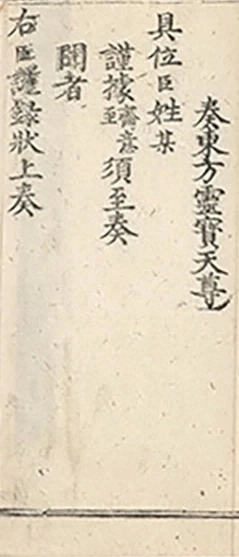 奏東方靈寳天尊
具位臣姓某
謹據齋意至須至奏
聞者
右臣謹録狀上奏